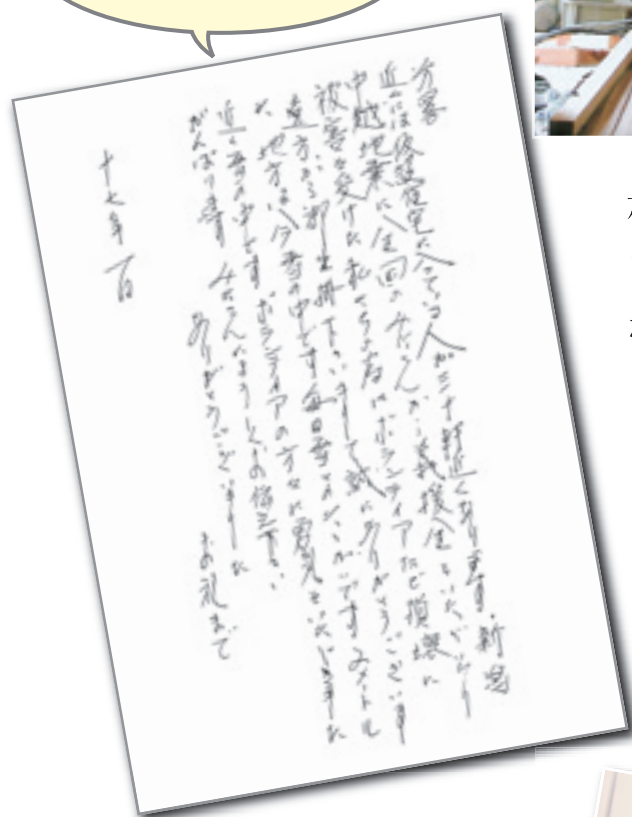 近くには仮設住宅に入っている人が三十軒近くあります。新潟
中越地震に全国のみなさんから義援金をいただいたり
被害を受けた私たちの為にボランティアなど損壊に
遠方から御出掛下さいまして誠にありがとうございまし
た 地方は今雪の中です 毎日雪 です 2メートル
近い雪の中です ボランティアの方々に勇気をいただきました
がんばります みなさんによろしくお伝え下さい
ありがとうございました
お礼まで
十七年 一月